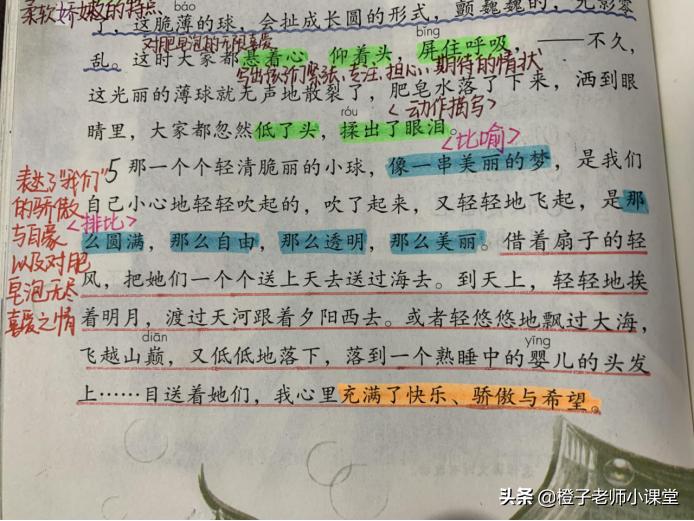 柔软娇嫩的特点
bào
了，这脆薄的球，会扯成长圆的形式，颤巍巍的，光影零
对肥皂泡的无限喜爱
bǐng
乱。这时大家都悬着心，仰着头，屏住呼吸，——不久，
写出孩子们紧张、专注、担心、期待的情状
这光丽的薄球就无声地散裂了，肥皂水落了下来，洒到眼
<动作描写>
róu
睛里，大家都忽然低了头，揉出了眼泪。
<比喻>
5 那一个个轻清脆丽的小球，像一串美丽的梦，是我们
自己小心地轻轻吹起的，吹了起来，又轻轻地飞起，是那
<排比>
么圆满，那么自由，那么透明，那么美丽。借着扇子的轻
风，把她们一个个送上天去送过海去。到天上，轻轻地挨
着明月，渡过天河跟着夕阳西去。或者轻悠悠地飘过大海，
diān
yīng
飞越山巅，又低低地落下，落到一个熟睡中的婴儿的头发
上……目送着她们，我心里充满了快乐、骄傲与希望。
表达了“我们”
的骄傲
与自豪
以及对肥
皂泡无尽
喜爱之情
头条 @橙子老师小课堂